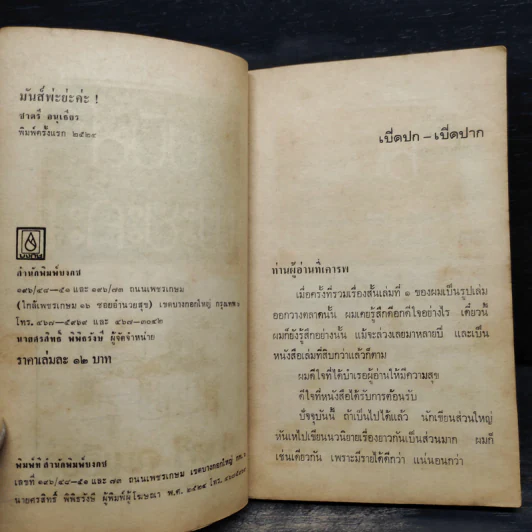 มันส์พ่ะย่ะค่ะ !
ชาตรี อนุเธียร
พิมพ์ครั้งแรก ๒๕๒๔
บงกช
สำนักพิมพ์บงกช
๑๙๖/๔๘–๕๑ และ ๑๙๖/๗๓ ถนนเพชรเกษม
(ใกล้เพชรเกษม ๑๖ ซอยอำนวยสุข) เขตบางกอกใหญ่ กรุงเทพฯ
โทร. ๔๖๗–๕๙๖๙ และ ๔๖๗–๓๐๔๒
นายศรสิทธิ์ พิพิธรังษี ผู้จัดจำหน่าย
ราคาเล่มละ ๑๒ บาท
พิมพ์ที่ สำนักพิมพ์บงกช
เลขที่ ๑๙๖/๔๘–๕๑ และ ๗๓ ถนนเพชรเกษม เขตบางกอกใหญ่
นายศรสิทธิ์ พิพิธรังษี ผู้พิมพ์ผู้โฆษณา พ.ศ. ๒๕๒๔ โทร.
เบี่ดปก – เบี่ดปาก
ท่านผู้อ่านที่เคารพ
เมื่อครั้งที่รวมเรื่องสั้นเล่มที่ ๑ ของผมเป็นรูปเล่ม
ออกวางตลาดนั้น ผมเคยรู้สึกดีอกดีใจอย่างไร เดี๋ยวนี้
ผมก็ยังรู้สึกอย่างนั้น แม้จะล่วงเลยมาหลายปี และเป็น
หนังสือเล่มที่สิบกว่าแล้วก็ตาม
ผมดีใจที่ได้บำเรอผู้อ่านให้มีความสุข
ดีใจที่หนังสือได้รับการต้อนรับ
ปัจจุบันนี้ ถ้าเป็นไปได้แล้ว นักเขียนส่วนใหญ่
หันเหไปเขียนนวนิยายเรื่องยาวกันเป็นส่วนมาก ผมก็
เช่นเดียวกัน เพราะมีรายได้ดีกว่า แน่นอนกว่า